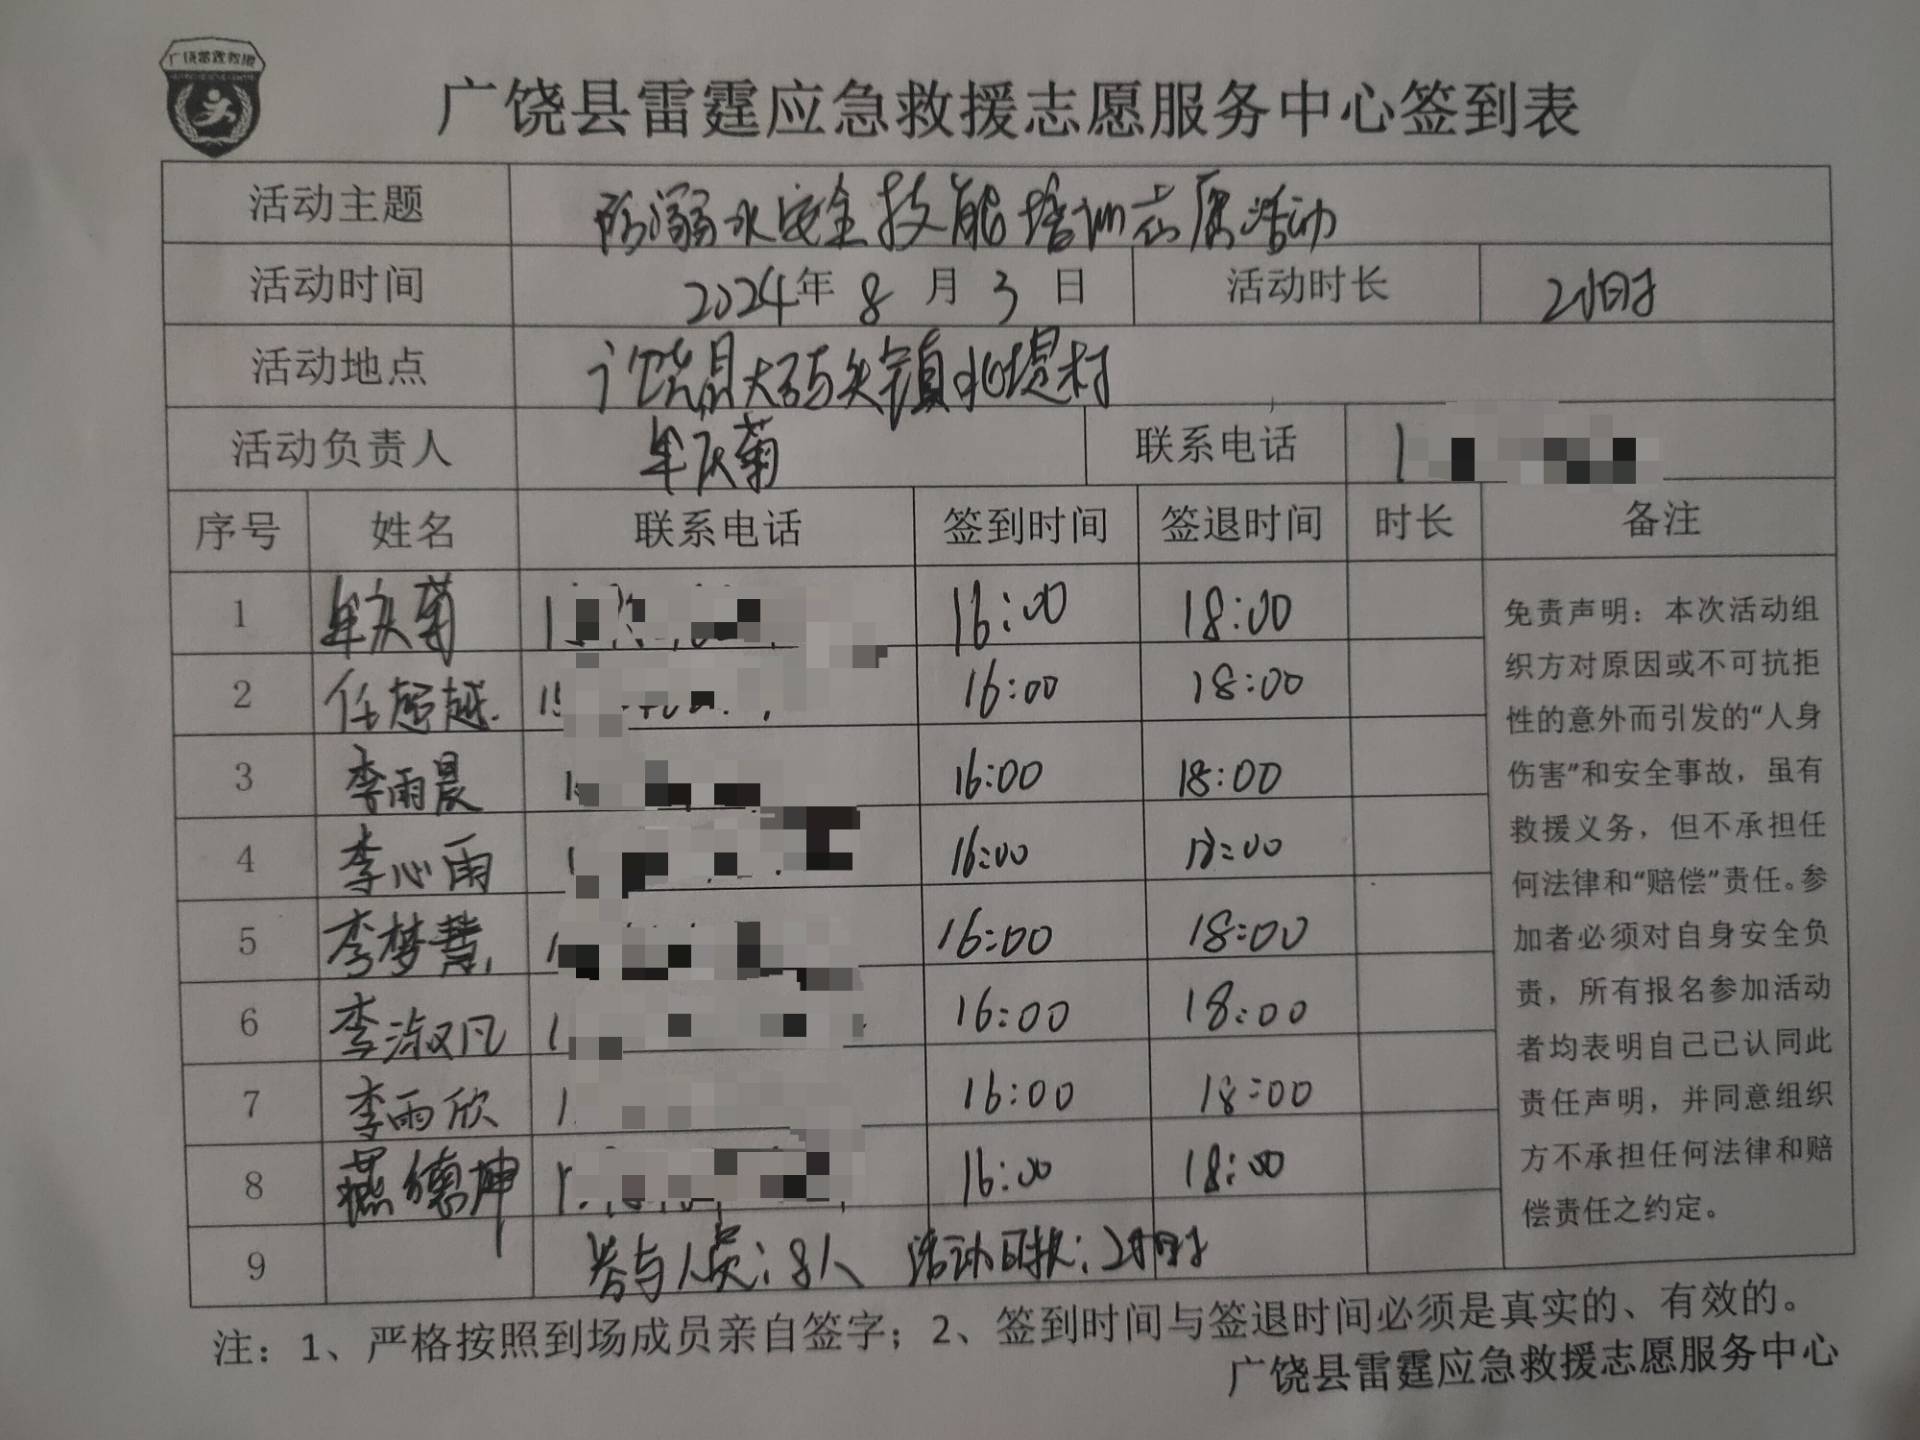 广饶雷霆救援
广饶县雷霆应急救援志愿服务中心签到表
活动主题 防溺水安全技能培训志愿活动
活动时间 2024年 8 月 3 日 活动时长 2小时
活动地点 广饶县大码头镇北堤村
活动负责人 牟庆菊 联系电话 1
序号 姓名 联系电话 签到时间 签退时间 时长 备注
1 牟庆菊 1 16:00 18:00
2 任超越 15 16:00 18:00
3 李雨晨 1 16:00 18:00
4 李心雨 1 16:00 18:00
5 李梦慧 1 16:00 18:00
6 李淑凡 1 16:00 18:00
7 李雨欣 1 16:00 18:00
8 燕德坤 1 16:00 18:00
9 参与人员:8人 活动时长:2小时
免责声明：本次活动组
织方对原因或不可抗拒
性的意外而引发的“人身
伤害”和安全事故，虽有
救援义务，但不承担任
何法律和“赔偿”责任。参
加者必须对自身安全负
责，所有报名参加活动
者均表明自己已认同此
责任声明，并同意组织
方不承担任何法律和赔
偿责任之约定。
注：1、严格按照到场成员亲自签字；2、签到时间与签退时间必须是真实的、有效的。
广饶县雷霆应急救援志愿服务中心